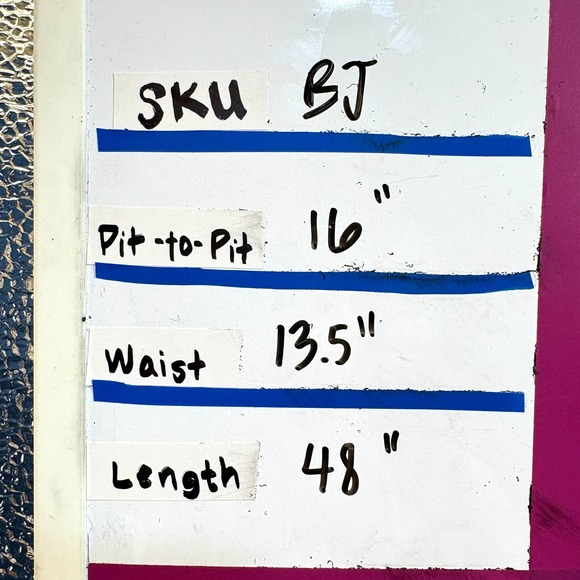 SKU BJ
Pit-to-Pit 16"
Waist 13.5"
Length 48"